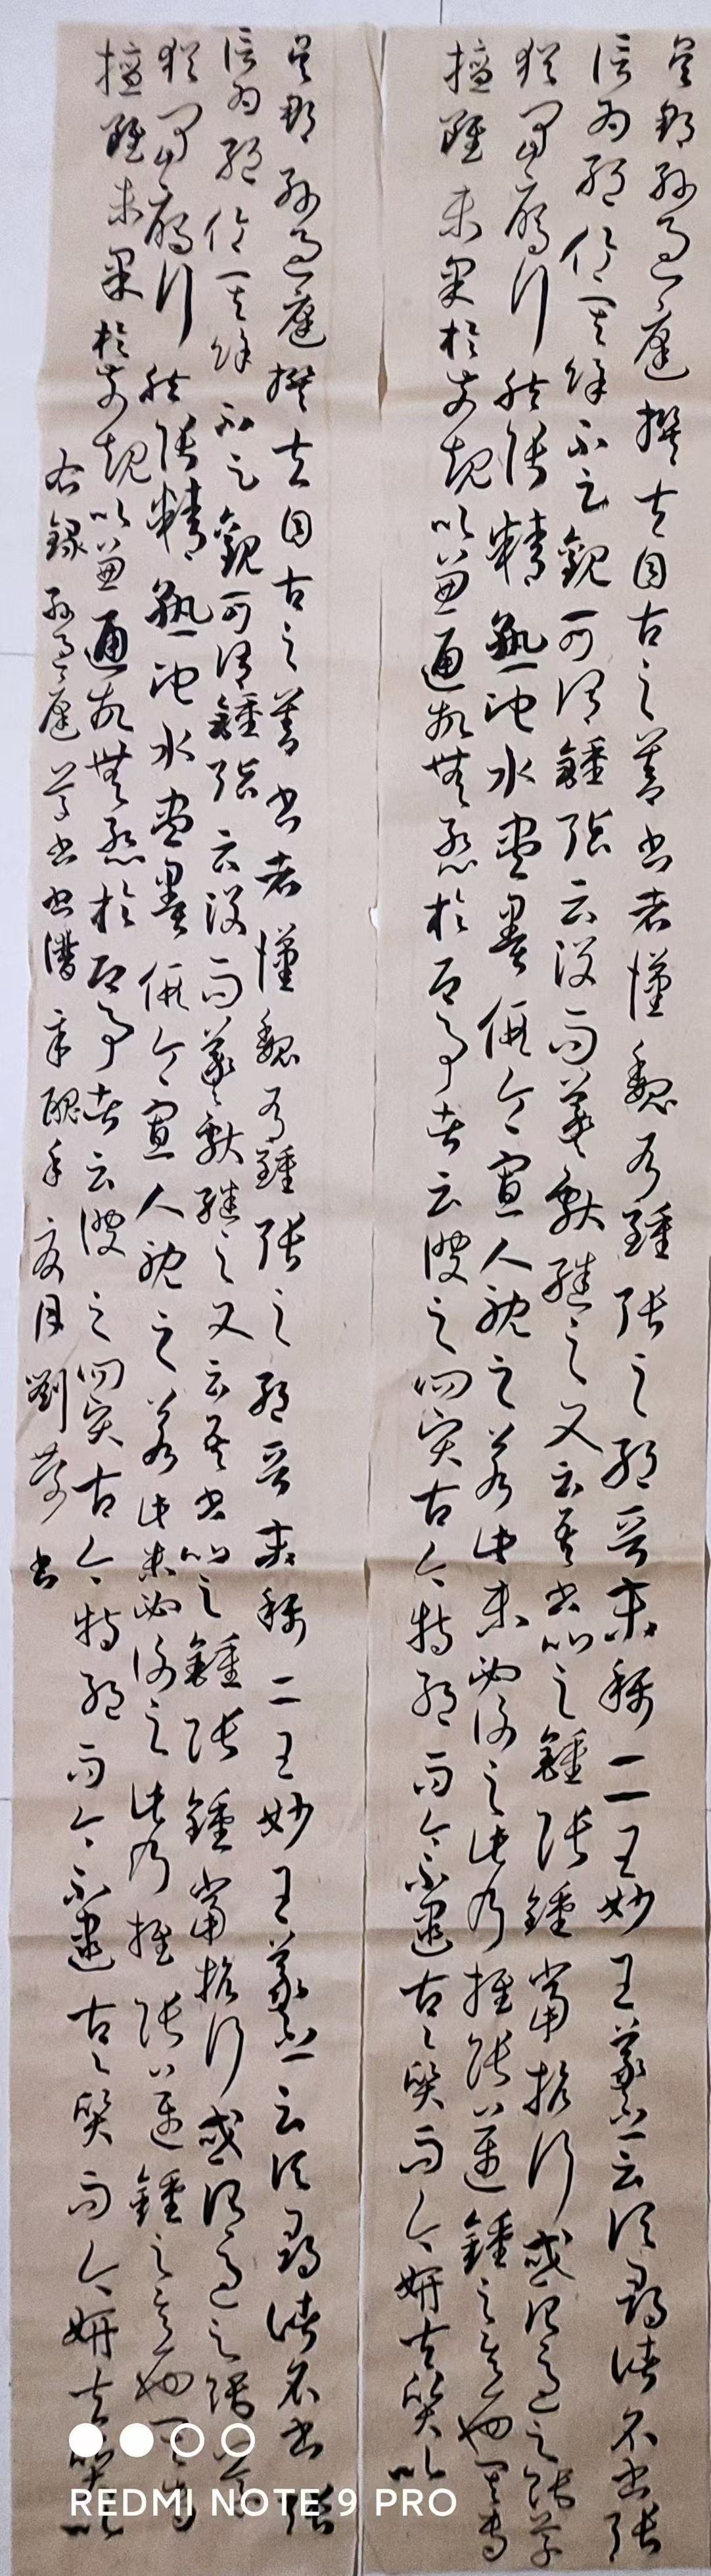 吳郡孫過庭撰夫自古之善書者漢魏有鍾張之絕晉末稱二王妙王羲之云頃尋諸名書張
信為絕倫其餘不足觀可謂鍾張云沒而羲獻繼之又云吾書比之鍾張鍾當抗行或謂過之張草
猶當雁行然張精熟池水盡墨假令寡人耽之若此未必謝之此乃推張邁鍾之意也考專
擅雖未果於前規以兼通故無慚於即事者云彼之四賢古今特絕而今不逮古古質而今妍夫質以
吳郡孫過庭撰夫自古之善書者漢魏有鍾張之絕晉末稱二王妙王羲之云頃尋諸名書張
信為絕倫其餘不足觀可謂鍾張云沒而羲獻繼之又云吾書比之鍾張鍾當抗行或謂過之張草
猶當雁行然張精熟池水盡墨假令寡人耽之若此未必謝之此乃推張邁鍾之意也考專
擅雖未果於前規以兼通故無慚於即事者云彼之四賢古今特絕而今不逮古古質而今妍夫質以
右錄孫過庭草書書譜辛醜年夏月劉書
REDMI NOTE 9 PRO